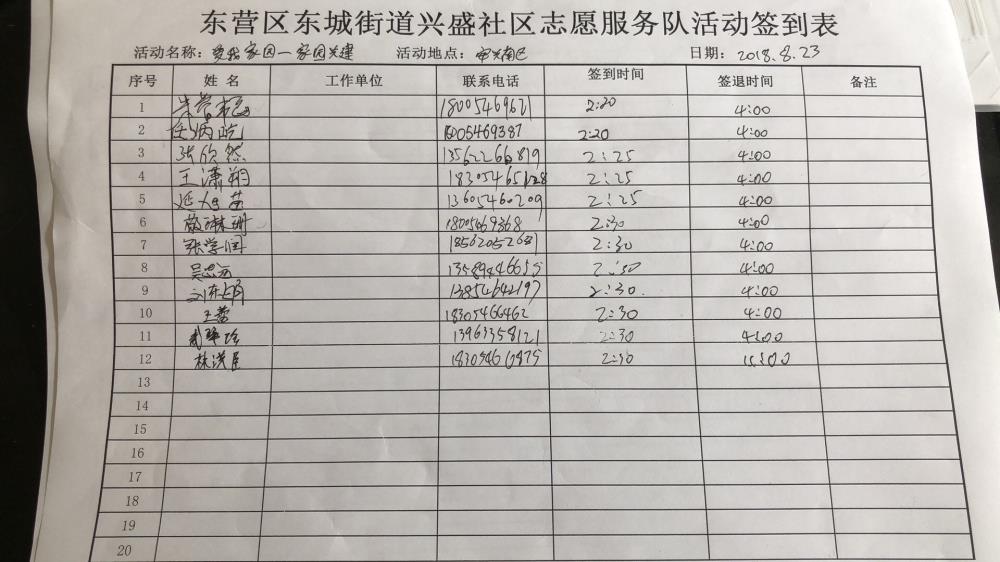 东营区东城街道兴盛社区志愿服务队活动签到表
活动名称：爱我家园一家园共建 活动地点： 日期：2018.8.23
序号 姓名 工作单位 联系电话 签到时间 签退时间 备注
1 18005469621 2:20 4:00
2 18005469387 2:20 4:00
3 张欣然 13562266819 2:25 4:00
4 王潇翔 2:25 4:00
5 13605460209 2:25 4:00
6 18005469868 2:30 4:00
7 张学润 18562052681 2:30 4:00
8 2:30 4:00
9 13854642197 2:30. 4:00
10 王蕾 18305466462 2:30 4:00
11 13963358121 2:30 4:00
12 林洪臣 18305460875 2:30 4:00
13
14
15
16
17
18
19
20